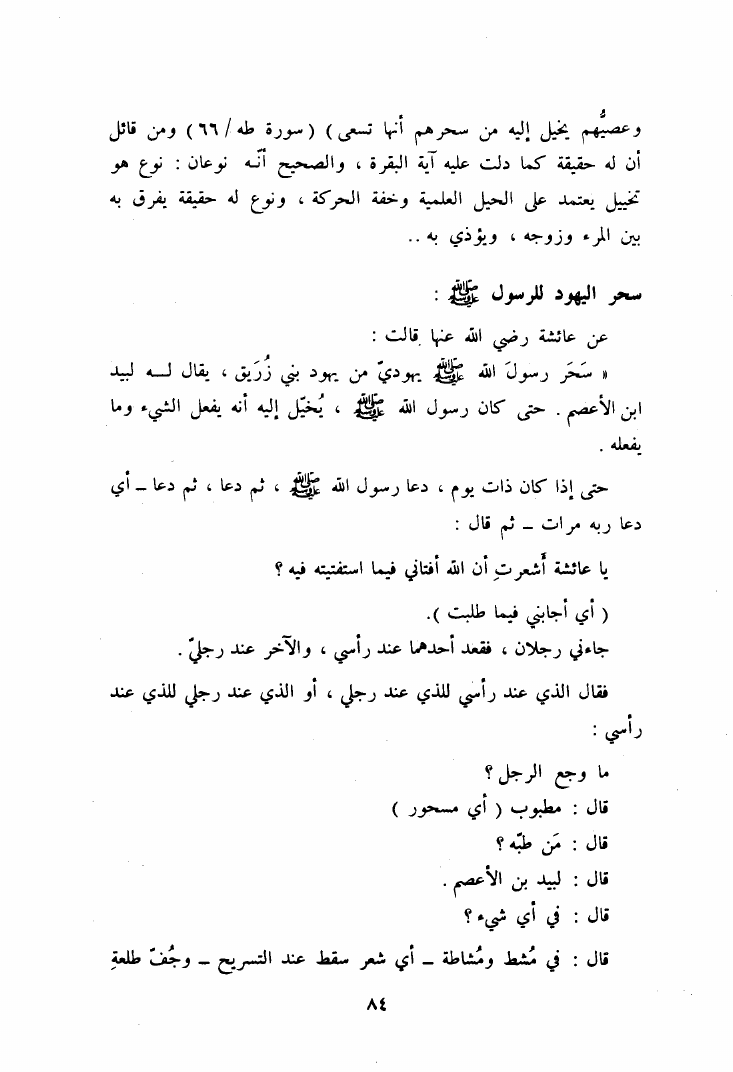 وعصيُّهم يخيل إليه من سحرهم أنها تسعى) (سورة طه/٦٦) ومن قائل
أن له حقيقة كما دلت عليه آية البقرة ، والصحيح أنّه نوعان : نوع هو
تخييل يعتمد على الحيل العلمية وخفة الحركة ، ونوع له حقيقة يفرق به
بين المرء وزوجه ، ويؤذي به ..
سحر اليهود للرسول ﷺ :
عن عائشة رضي الله عنها قالت :
« سَحَر رسولَ الله ﷺ يهوديّ من يهود بني زُرَيق ، يقال له لبيد
ابن الأعصم . حتى كان رسول الله ﷺ ، يُخيّل إليه أنه يفعل الشيء وما
يفعله .
حتى إذا كان ذات يوم ، دعا رسول الله ﷺ ، ثم دعا ، ثم دعا – أي
دعا ربه مرات – ثم قال :
يا عائشة أَشعرتِ أن الله أفتاني فيما استفتيته فيه ؟
( أي أجابني فيما طلبت ).
جاءني رجلان ، فقعد أحدهما عند رأسي ، والآخر عند رجليّ .
فقال الذي عند رأسي للذي عند رجلي ، أو الذي عند رجلي للذي عند
رأسي :
ما وجع الرجل ؟
قال : مطبوب ( أي مسحور )
قال : مَن طبّه ؟
قال : لبيد بن الأعصم .
قال : في أي شيء ؟
قال : في مُشط ومُشاطة – أي شعر سقط عند التسريح – وجُفّ طلعةِ
٨٤